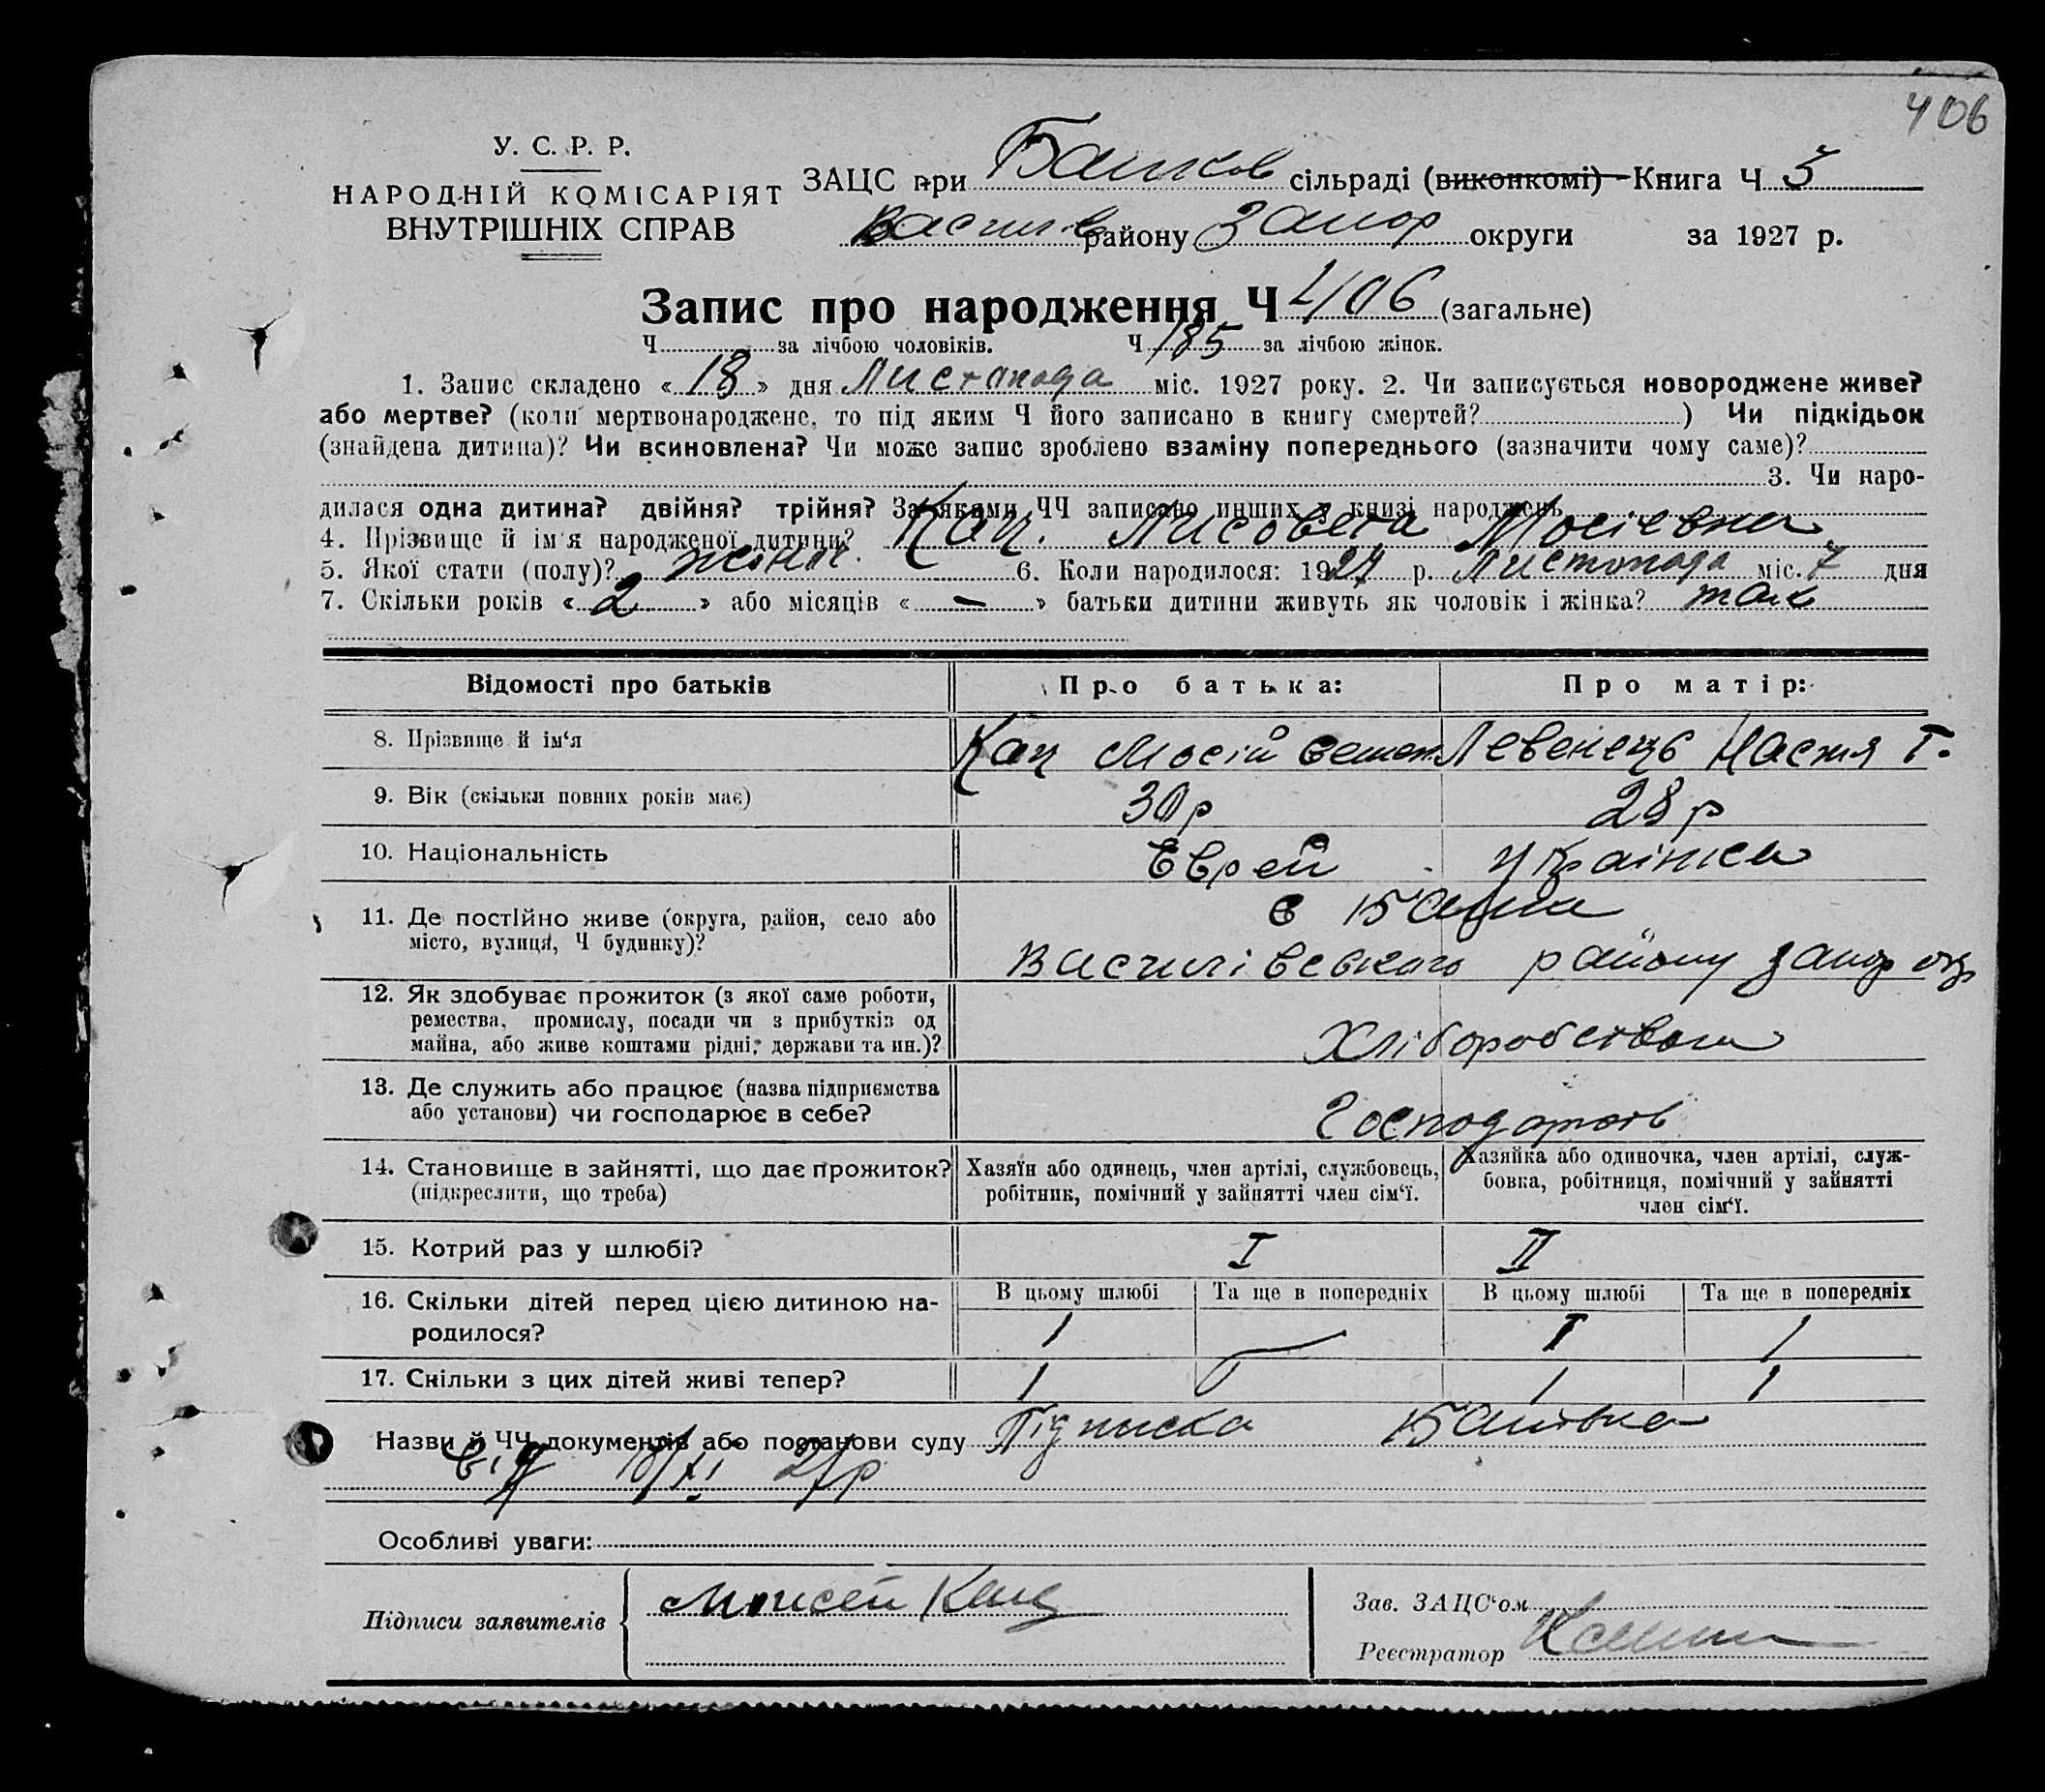 406
У. С. Р. Р.
НАРОДНІЙ КОМІСАРІЯТ
ВНУТРІШНІХ СПРАВ
ЗАЦС при Башков сільраді (виконкомі) Книга Ч 3
Василів району Запор округи за 1927 р.
Запис про народження Ч 406 (загальне)
Ч за лічбою чоловіків. Ч 185 за лічбою жінок.
1. Запис складено « 18 » дня Листопада міс. 1927 року. 2. Чи записується новороджене живе?
або мертве? (коли мертвонароджене, то під яким Ч його записано в книгу смертей? ) Чи підкідьок
(знайдена дитина)? Чи всиновлена? Чи може запис зроблено взаміну попереднього (зазначити чому саме)?
3. Чи наро-
дилася одна дитина? двійня? трійня? За якими ЧЧ записано инших у книзі народжень
4. Прізвище й ім'я народженої дитини? Кац. Лисовета Мосіевна
5. Якої стати (полу)? жіноч. 6. Коли народилося: 1927 р. Листопада міс. 7 дня
7. Скільки років « 2 » або місяців « — » батьки дитини живуть як чоловік і жінка? так
Відомості про батьків Про батька: Про матір:
8. Прізвище й ім‘я Кац Мосій Семен. Левенець Настя Т.
9. Вік (скільки повних років має) 30 р 28 р
10. Національність Еврей Украінка
11. Де постійно живе (округа, район, село або
місто, вулиця, Ч будинку)?
Василівського району Запор окр
12. Як здобуває прожиток (з якої саме роботи,
ремества, промислу, посади чи з прибутків од
майна, або живе коштами рідні, держави та ин.)? Хліборобством
13. Де служить або працює (назва підприємства
або установи) чи господарює в себе?
14. Становище в зайнятті, що дає прожиток? Хазяїн або одинець, член артілі, службовець, Хазяйка або одиночка, член артілі, служ-
(підкреслити, що треба) робітник, помічний у зайнятті член сім‘ї. бовка, робітниця, помічний у зайнятті
член сім‘ї.
15. Котрий раз у шлюбі? I II
16. Скільки дітей перед цією дитиною на- В цьому шлюбі Та ще в попередніх В цьому шлюбі Та ще в попередніх
родилося? 1 — I 1
17. Скільки з цих дітей живі тепер? 1 1 1
Назви й ЧЧ документів або постанови суду Підписка Батька
від 18/XI 27 р
Особливі уваги:
Підписи заявителів Моисей Кац Зав. ЗАЦС‘ом
Реєстратор